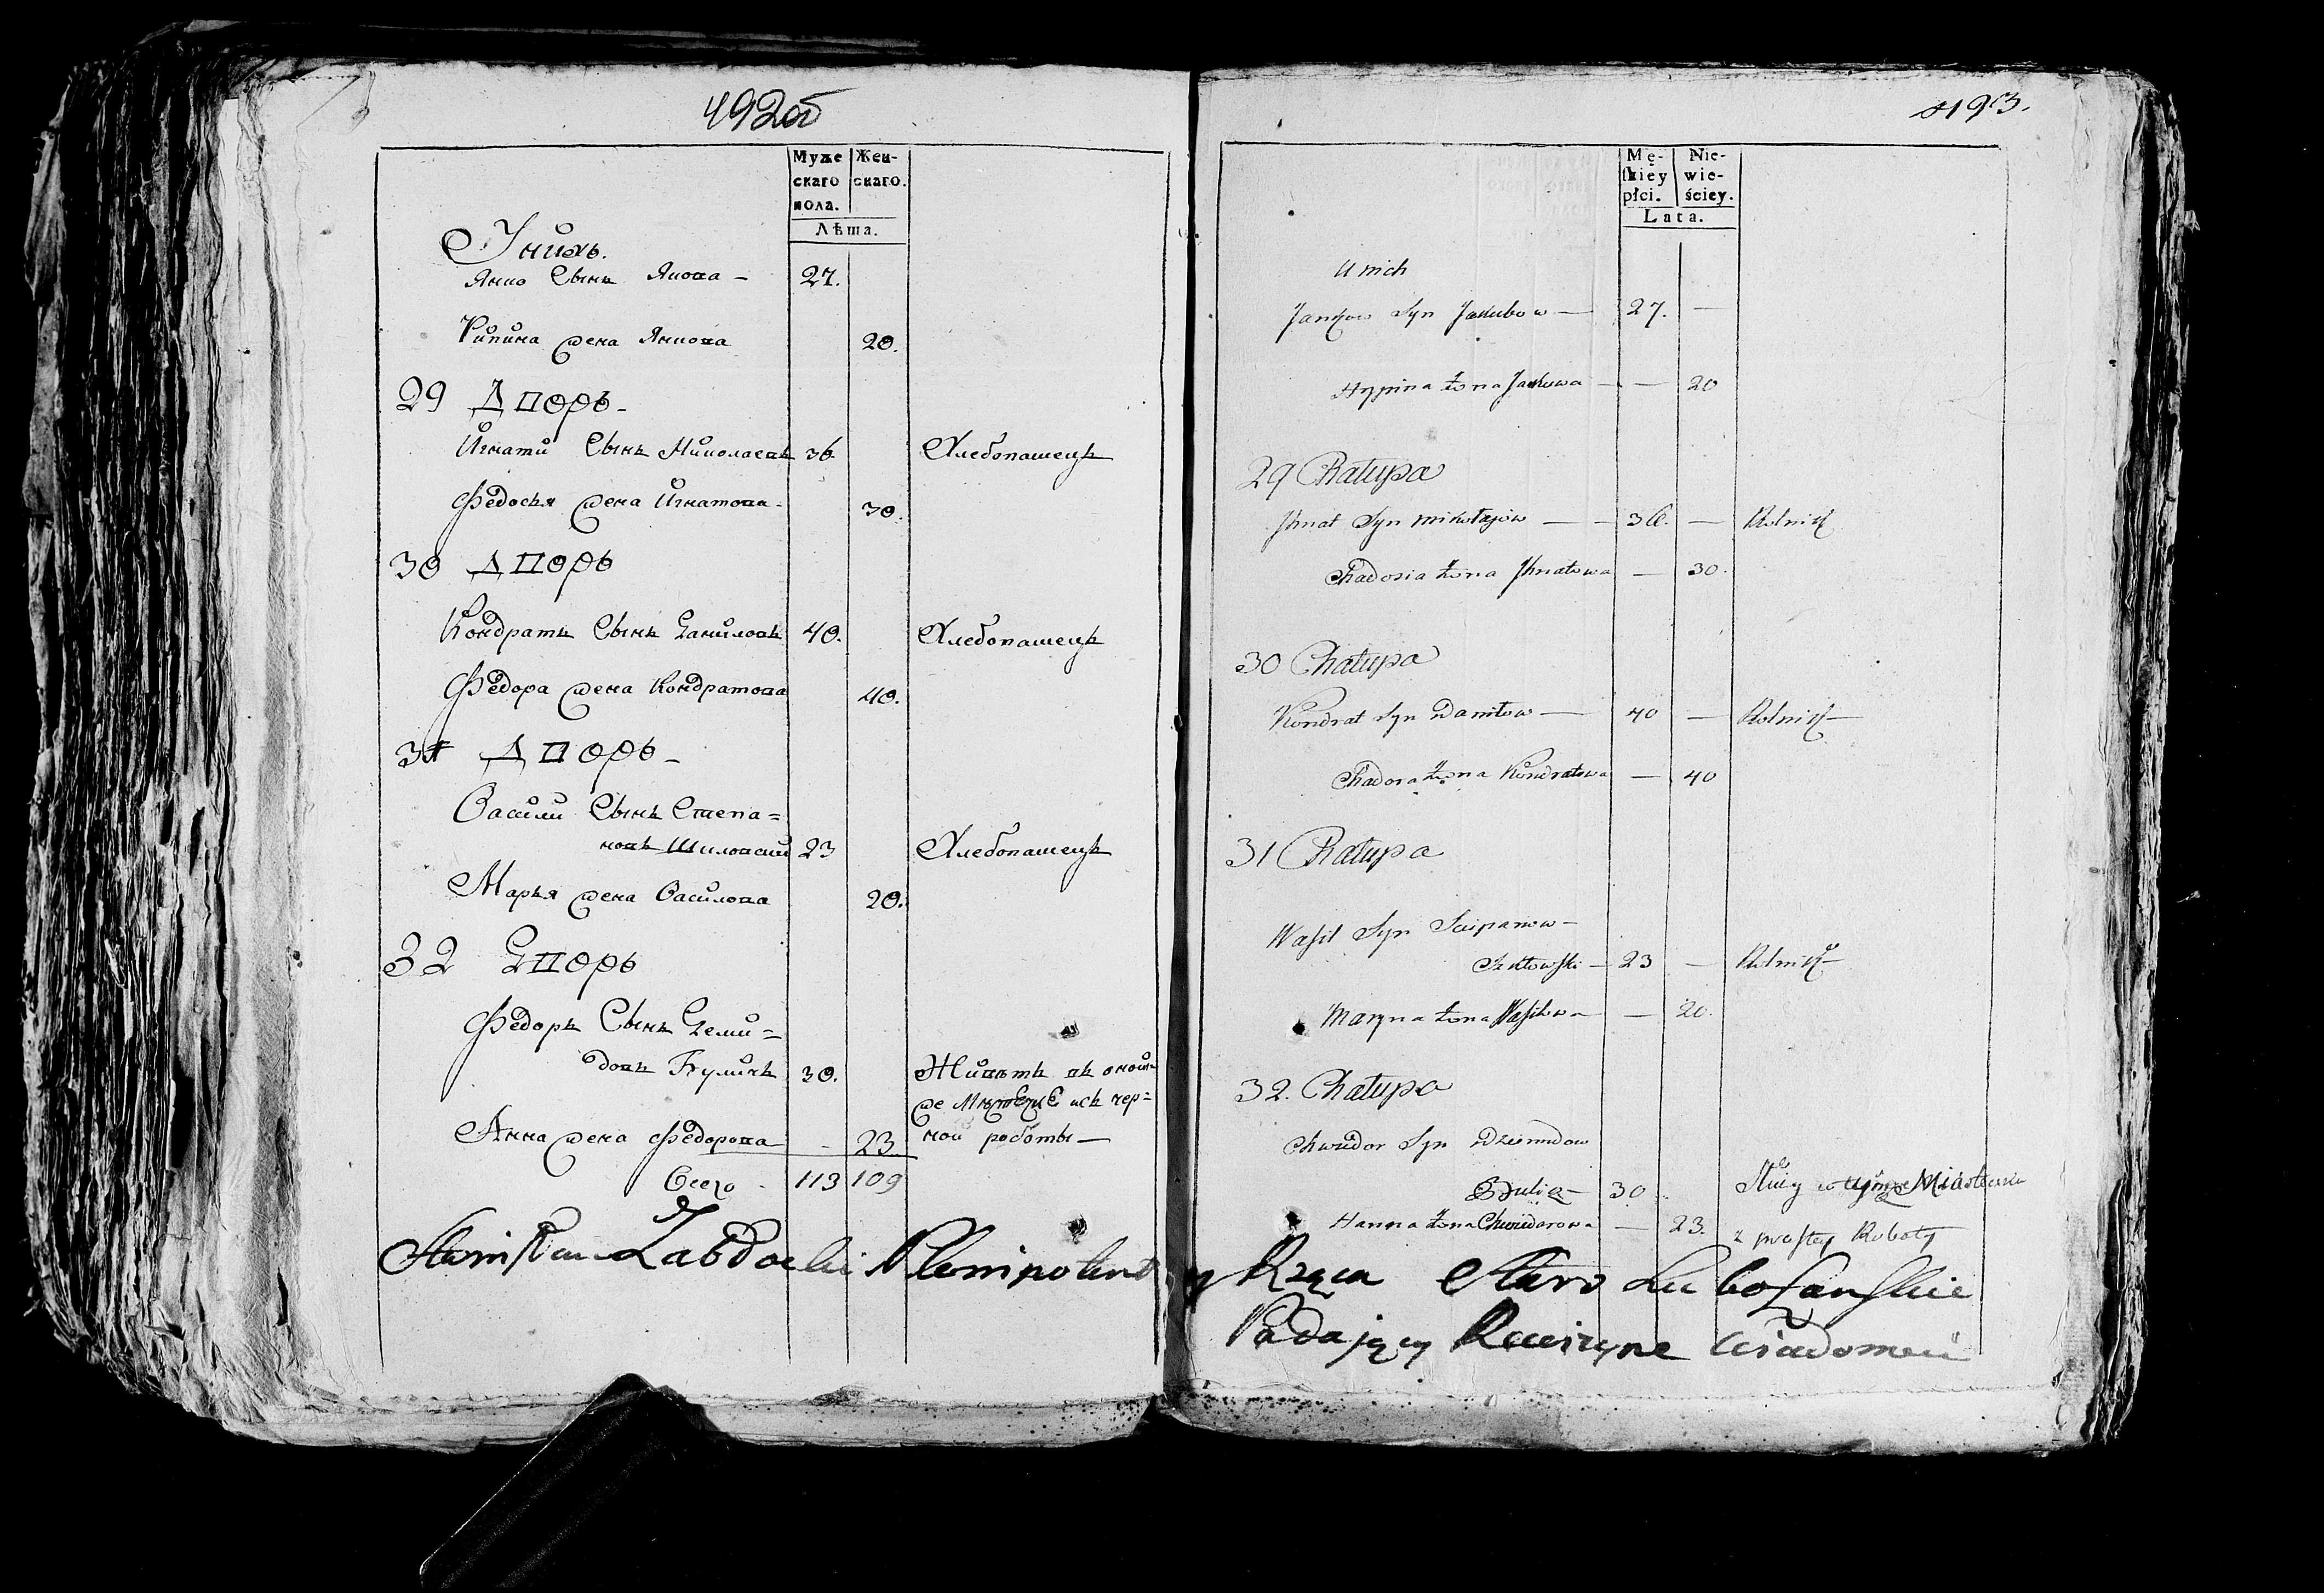 492об
Муже
скаго
пола.
Жен-
скаго.
Лѣта.
У нихъ.
Янко Сынъ Яковa - 27.
жена Янкова 20.
29 Дворъ -
Игнати Сынъ Николаевъ 36 Хлебопашецъ
Федосья жена Игнатова - 30.
30 Дворъ
Кондратъ Сынъ Даниловъ 40. Хлебопашецъ
Федора жена Кондратова 40.
31 Дворъ -
Васили Сынъ Степа=
новъ Шиловский 23 Хлебопашецъ
Марья жена Василова 20.
32 Дворъ
Федоръ Сынъ Деми=
довъ 30. Живетъ въ ономъ
же исъ чер=
Анна жена Федорова - 23 ной работы —
Всего - 113 109
Plenipotent
493.
Mę-
ſkiey
płci.
Nie-
wie-
ściey.
Lata.
U nich
Jankow Syn Jakubow — 27. —
Hypina żona Jankowa — — 20
29 Chałupa
Ihnat Syn mikołajów — — 36. — Rolnik
Chadosia żona Ihnatowa — 30.
30 Chałupa
Kondrat Syn Daniłow — 40 — Rolnik —
Chadora żona Kondratowa — 40
31 Chałupa
Waſil Syn Sciepanow —
Szyłowſki — 23 — Rolnik —
Maryna żona Waſilowa — 20.
32. Chałupa
Chwiedor Syn Dziemidow
30 Żyie w tymże Miasteczku
Hanna żona Chwiedorowa — 23. z proſtey Roboty
Rządca Staro Lu
Podający Rewizyne wiadomość